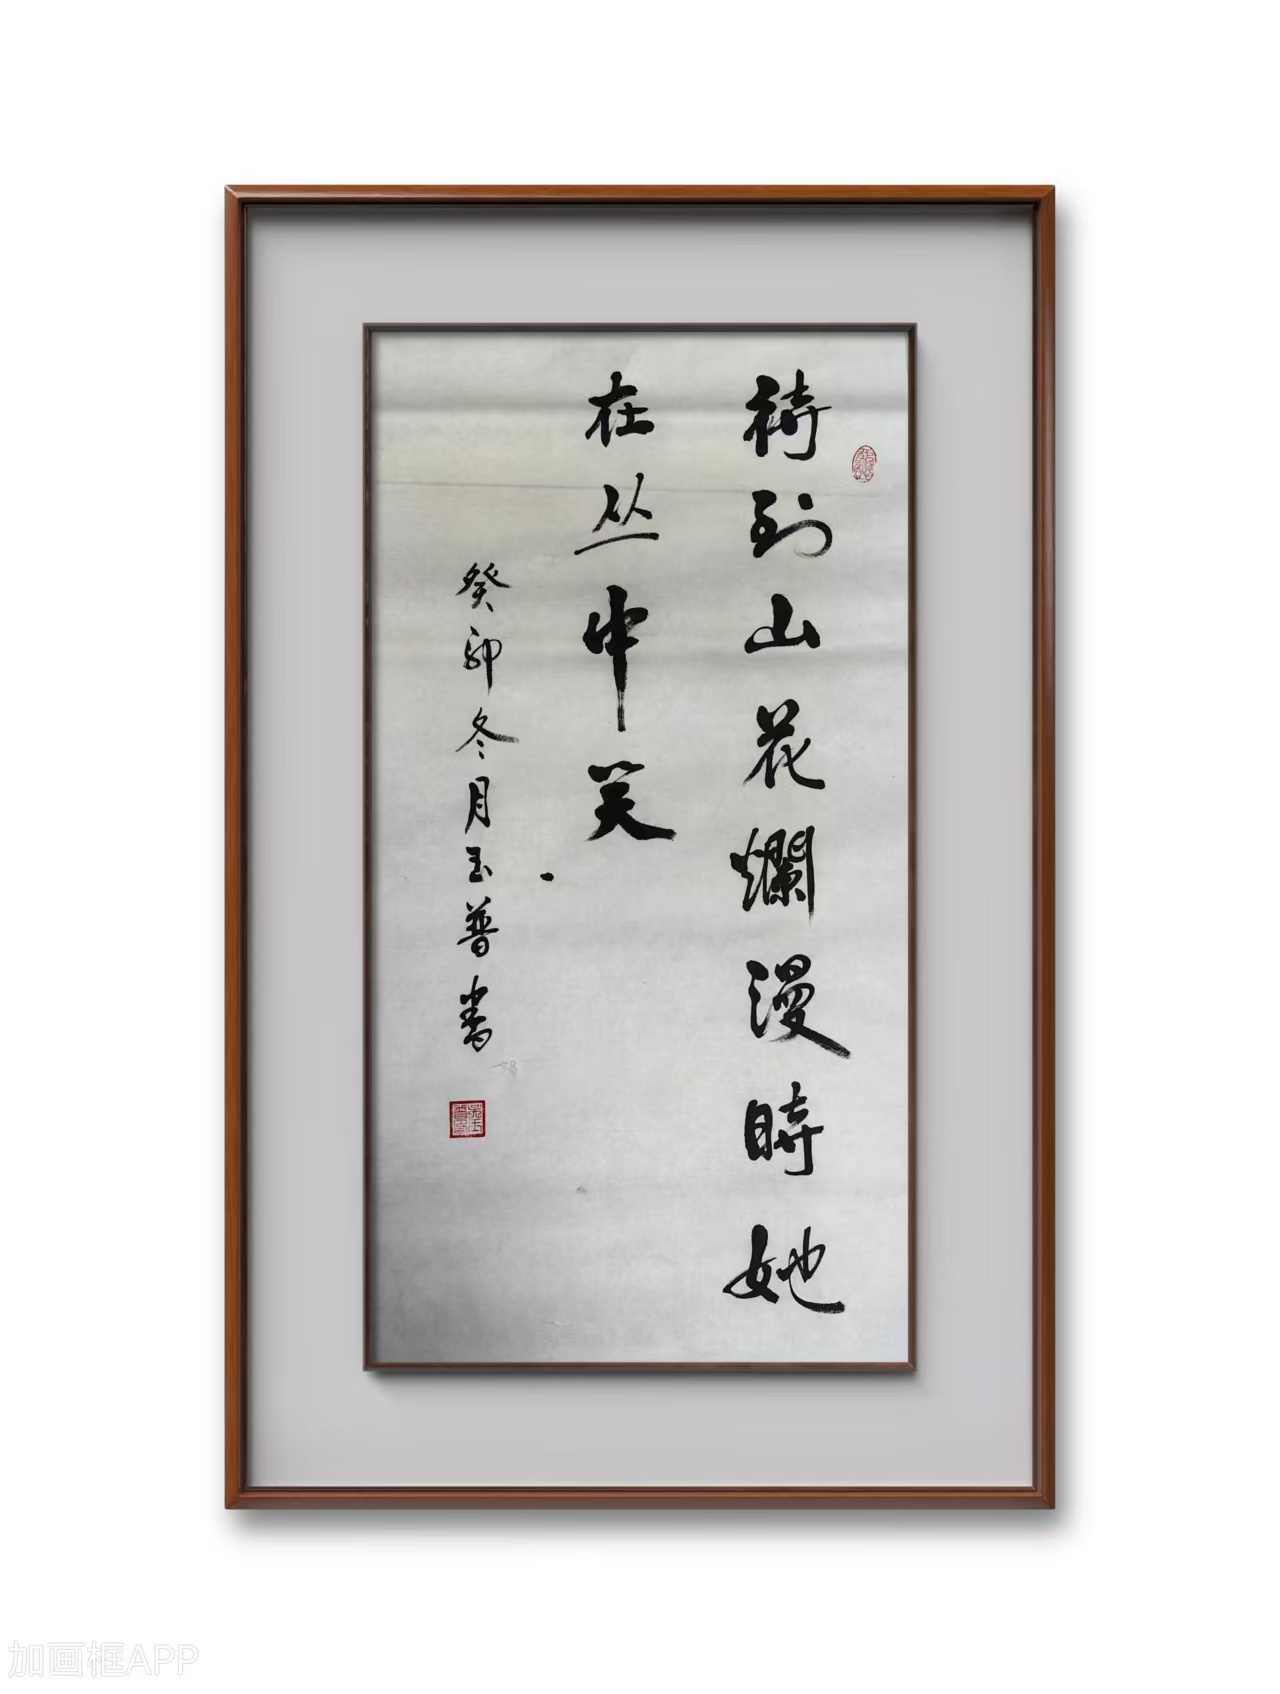 待到山花爛漫時她
在丛中笑
癸卯冬月玉普書
加画框APP